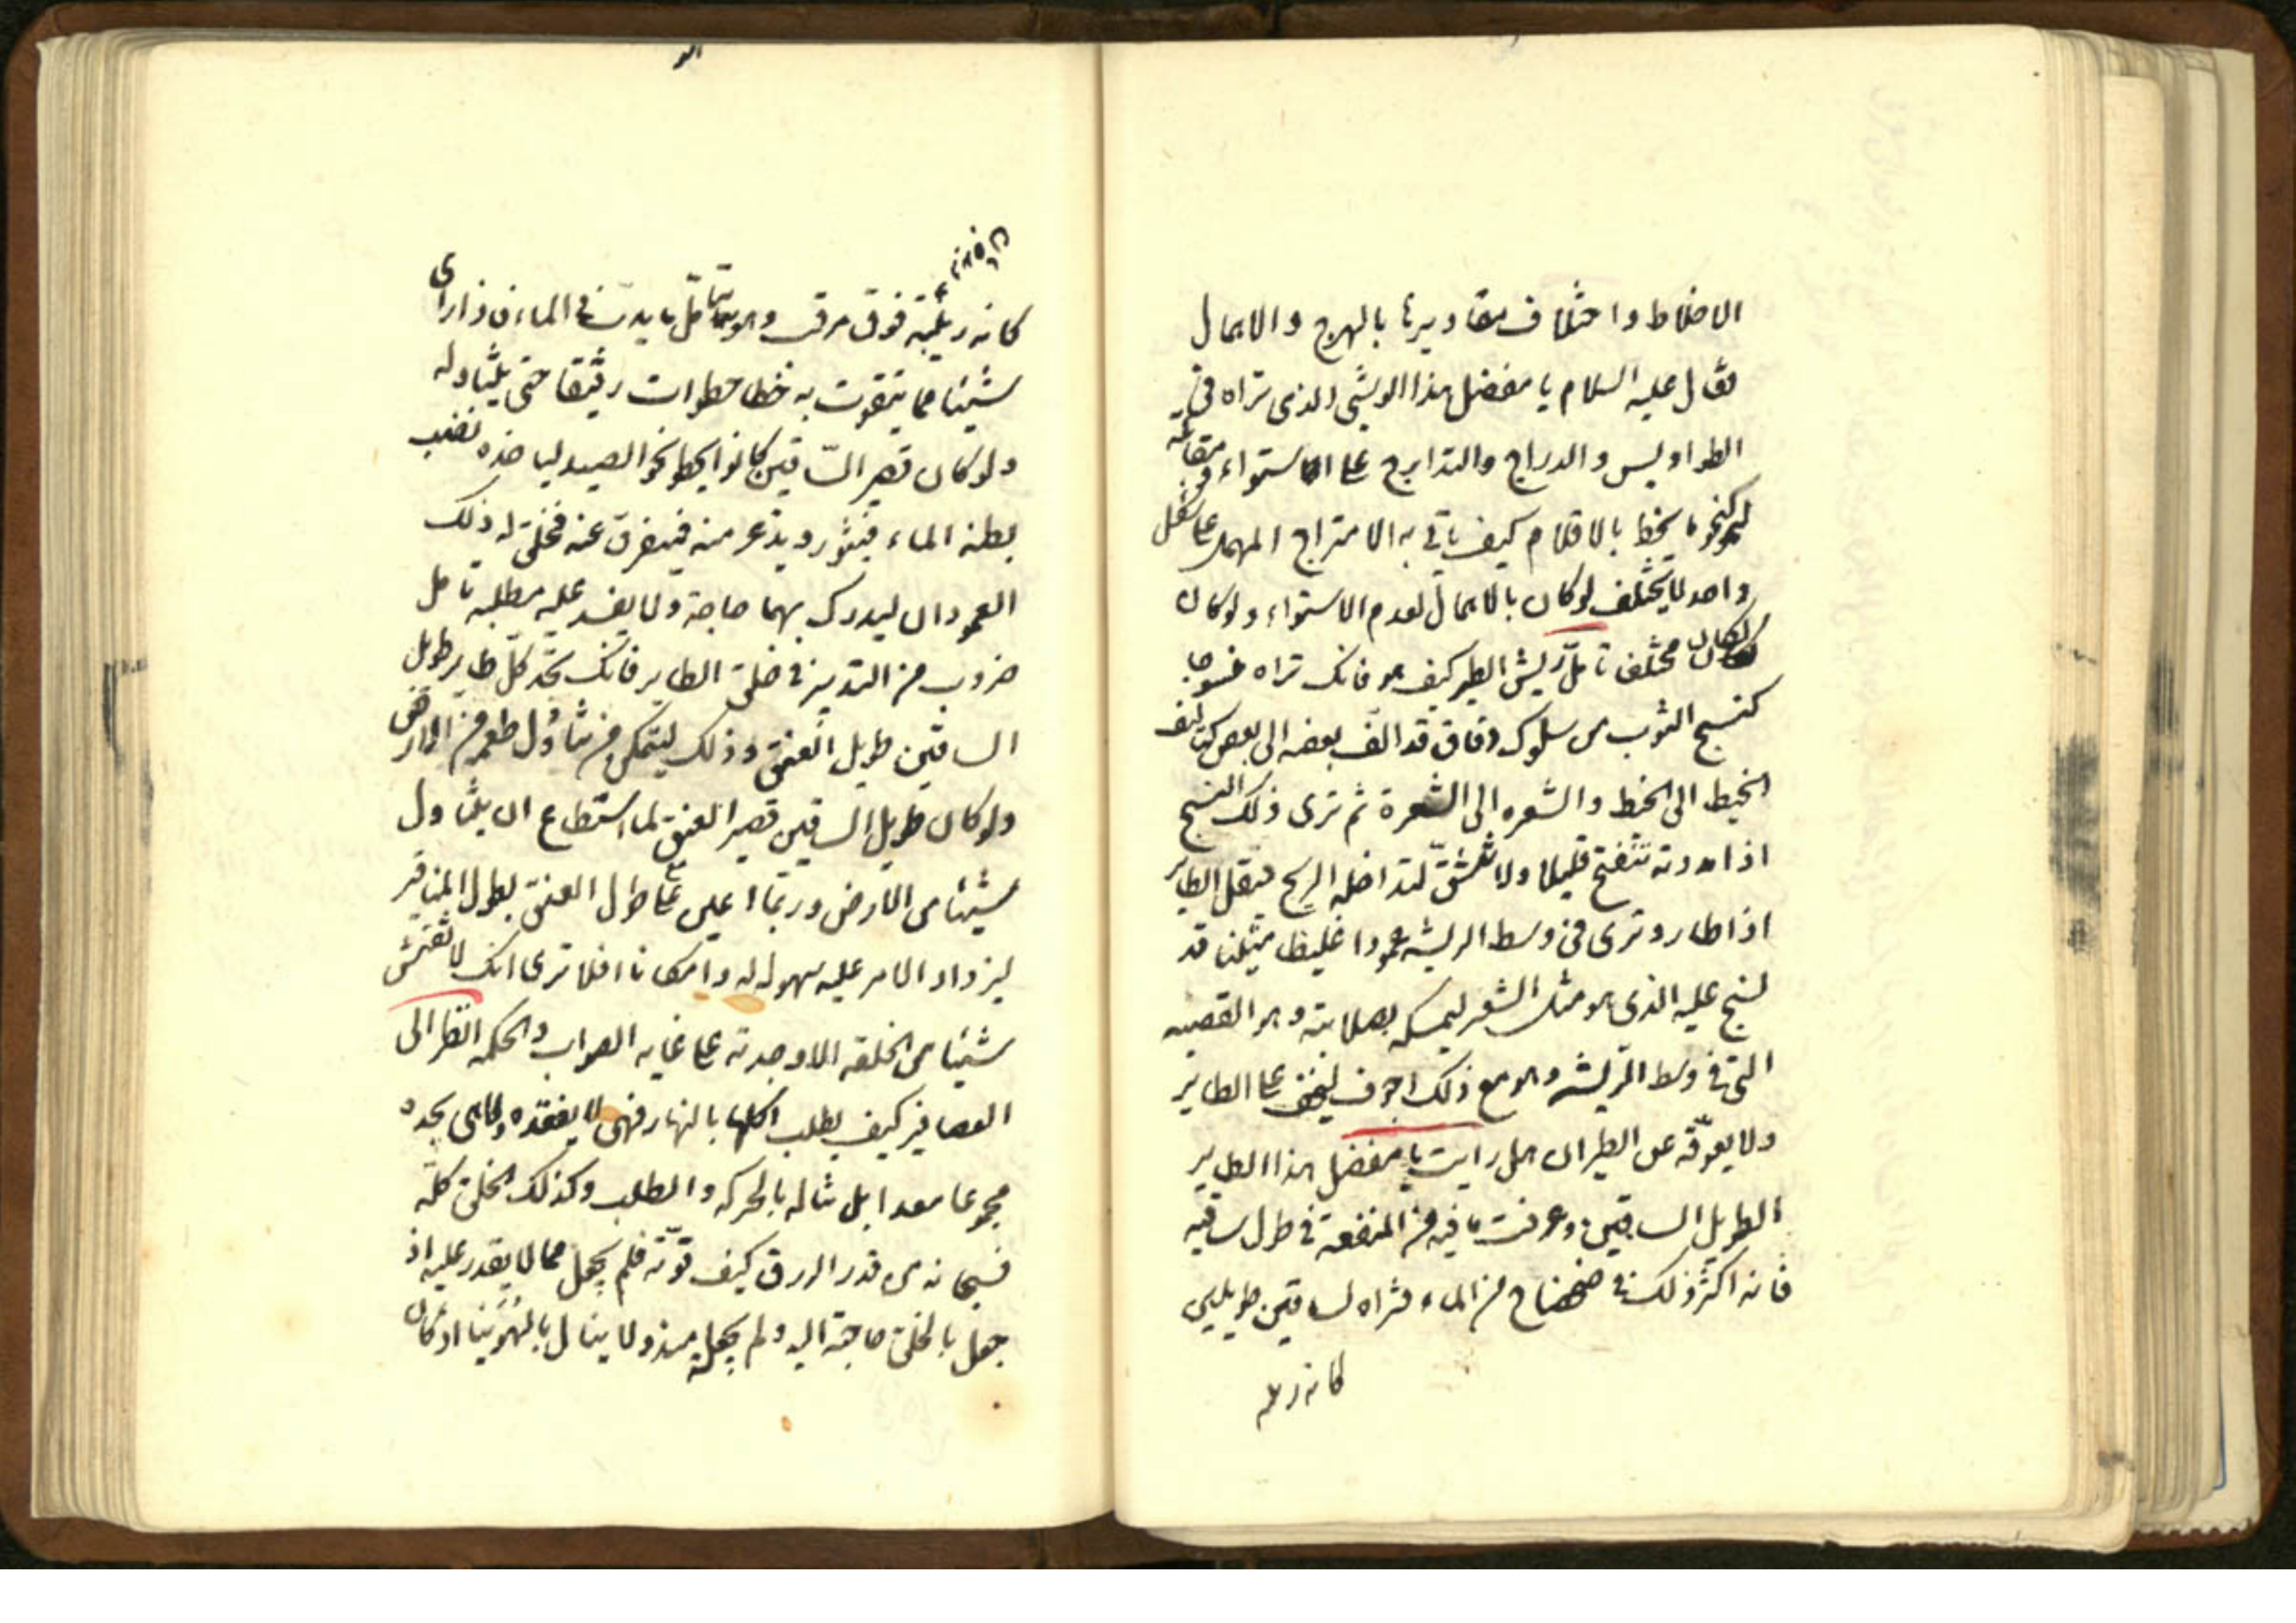 الاخلاط واختلاف مقاديرها بالهرج والاهمال
فقال عليه السلام يا مفضل هذا الوشي الذي تراه في
الطواويس والدراج والتدارج على استواء ومقابلة
كنحو ما يخط بالاقلام كيف ياتي به الامتزاج المهمل على شكل
واحد لا يختلف لو كان بالاهمال لعدم الاستواء ولكان
مختلفا تامل ريش الطير كيف هو فانك تراه منسوجا
كنسج الثوب من سلوك دقاق قد الف بعضه الى بعض كتاليف
الخيط الى الخيط والشعره الى الشعرة ثم ترى ذلك النسج
اذا مددته تنفتح قليلا ولا تنشق لتداخله الريح فيقل الطاير
اذا طار وترى في وسط الريشه عمودا غليظا متينا قد
نسج عليه الذي هو مثل الشعر ليمسكه بصلابته وهو القصبه
التي في وسط الريشه وهو مع ذلك اجوف ليخف على الطاير
ولا يعوقه عن الطيران هل رايت يا مفضل هذا الطاير
الطويل الساقين وعرفت ما فيه من المنفعة في طول ساقيه
فانه اكثر ذلك في ضحضاح من الماء فتراه بساقين طويلين
كانه ربيئة فوق مرقب وهو يتامل ما يدب في الماء فاذا راى
شيئا مما يتقوت به خطا خطوات رقيقا حتى يتناوله
ولو كان قصير الساقين كان يخطو نحو الصيد لياخذه تصيب
بطنه الماء فيثور ويذعر منه فيتفرق عنه فخلق له ذلك
العمودان ليدرك بهما حاجة ولا يفسد عليه مطلبه تامل
ضروب من التدبير في خلق الطاير فانك تجد كل طاير طويل
الساقين طويل العنق وذلك ليتمكن من تناول طعمه من الارض
ولو كان طويل الساقين قصير العنق لما استطاع ان يتناول
شيئا من الارض وربما اعين على طول العنق بطول المناقير
ليزداد الامر عليه سهوله له وامكانا افلا ترى انك لا تفتش
شيئا من الخلقه الا وجدته على غايه الصواب والحكمه انظر الى
العصافير كيف يطلب اكلها بالنهار فهي لا يفقده ولا هي يجده
مجموعا معدا بل تناله بالحركه والطلب وكذلك الخلق كله
فسبحانه من قدر الرزق كيف قوته فلم يجعل مما لا يقدر عليه اذ
جعل بالخلق حاجة اليه ولم يجعله مبذولا ينال بالهوينا اذ كان